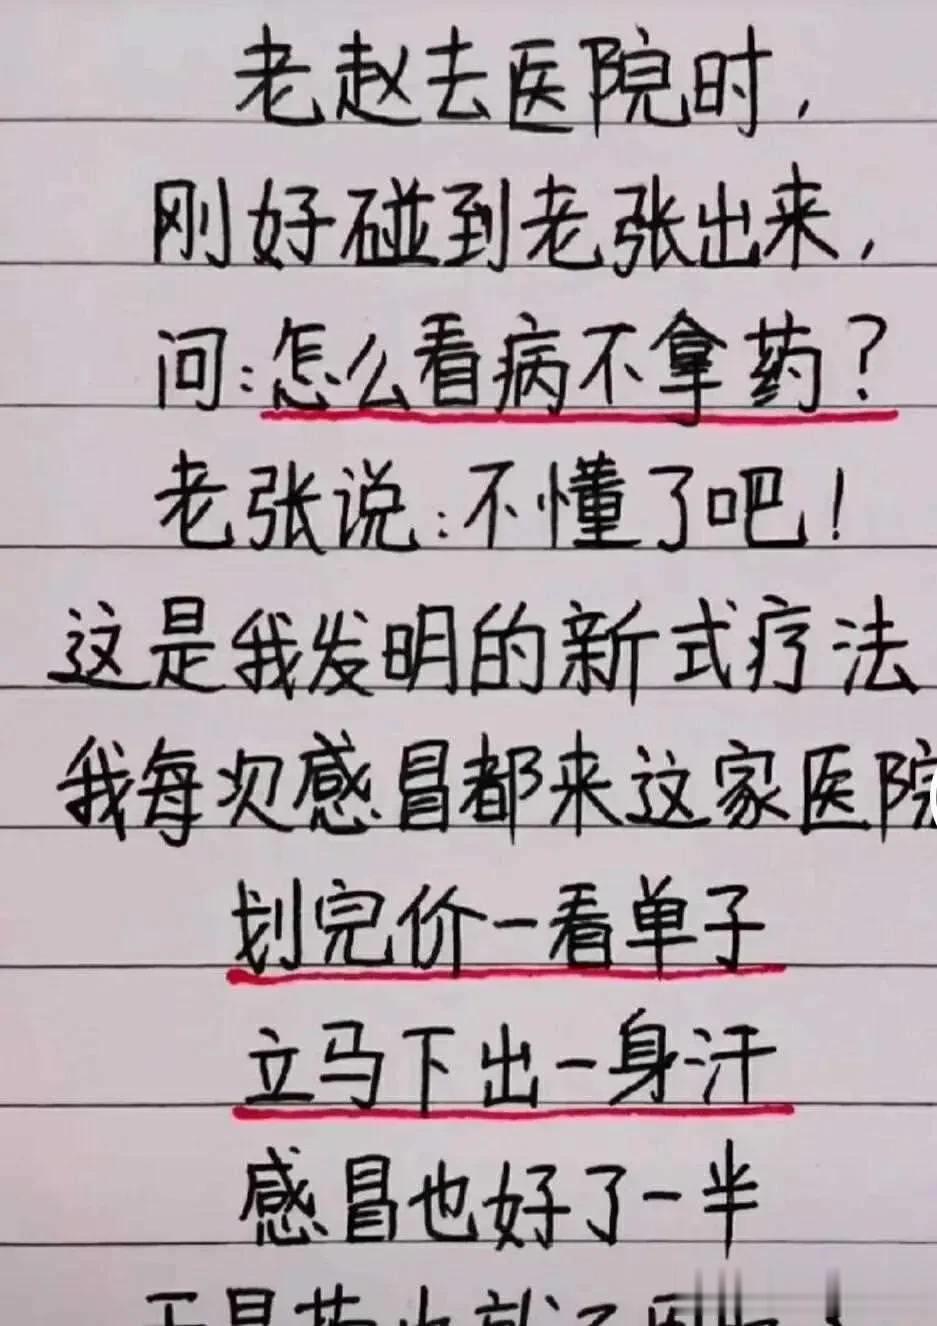 老赵去医院时,
刚好碰到老张出来,
问:怎么看病不拿药?
老张说:不懂了吧!
这是我发明的新式疗法
我每次感冒都来这家医院
划完价一看单子
立马下出一身汗
感冒也好了一半
于是药也就不用